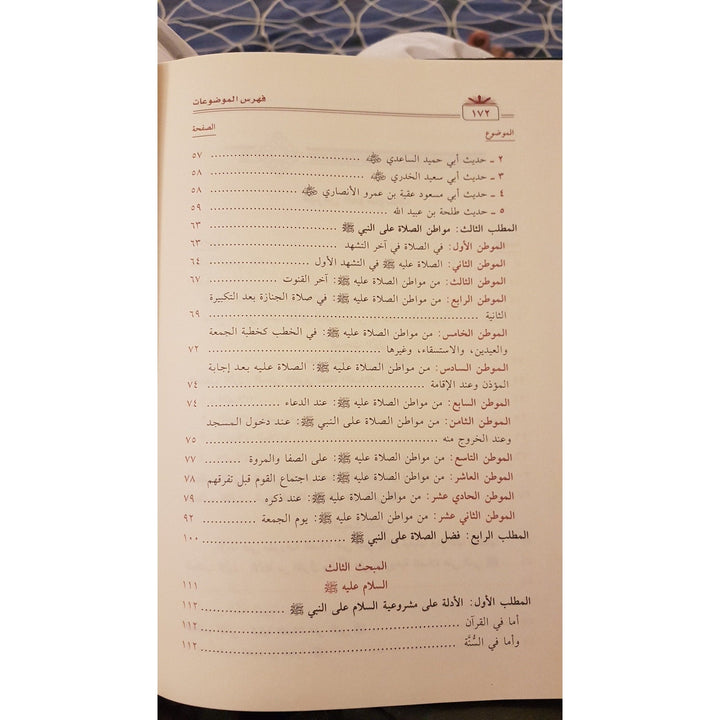 ١٧٢ فهرس الموضوعات
الموضوع الصفحة
٢ ـ حديث أبي حميد الساعدي ﷺ ........ ٥٧
٣ ـ حديث أبي سعيد الخدري ﷺ ........ ٥٨
٤ ـ حديث أبي مسعود عقبة بن عمرو الأنصاري ﷺ ........ ٥٨
٥ ـ حديث طلحة بن عبيد الله ........ ٥٩
المطلب الثالث: مواطن الصلاة على النبي ﷺ ........ ٦٣
الموطن الأول: في الصلاة في آخر التشهد ........ ٦٣
الموطن الثاني: الصلاة عليه ﷺ في التشهد الأول ........ ٦٤
الموطن الثالث: من مواطن الصلاة عليه ﷺ: آخر القنوت ........ ٦٧
الموطن الرابع: من مواطن الصلاة عليه ﷺ: في صلاة الجنازة بعد التكبيرة
الثانية ........ ٦٩
الموطن الخامس: من مواطن الصلاة عليه ﷺ: في الخطب كخطبة الجمعة
والعيدين، والاستسقاء، وغيرها ........ ٧٢
الموطن السادس: من مواطن الصلاة عليه ﷺ: الصلاة عليه بعد إجابة
المؤذن وعند الإقامة ........ ٧٤
الموطن السابع: من مواطن الصلاة عليه ﷺ: عند الدعاء ........ ٧٤
الموطن الثامن: من مواطن الصلاة على النبي ﷺ: عند دخول المسجد
وعند الخروج منه ........ ٧٥
الموطن التاسع: من مواطن الصلاة عليه ﷺ: على الصفا والمروة ........ ٧٧
الموطن العاشر: من مواطن الصلاة عليه ﷺ: عند اجتماع القوم قبل تفرقهم ٧٨
الموطن الحادي عشر: من مواطن الصلاة عليه ﷺ: عند ذكره ........ ٧٩
الموطن الثاني عشر: من مواطن الصلاة عليه ﷺ: يوم الجمعة ........ ٩٢
المطلب الرابع: فضل الصلاة على النبي ﷺ ........ ١٠٠
المبحث الثالث
السلام عليه ﷺ ١١١
المطلب الأول: الأدلة على مشروعية السلام على النبي ﷺ ........ ١١٢
أما في القرآن ........ ١١٢
وأما في السُّنَّة ........ ١١٢